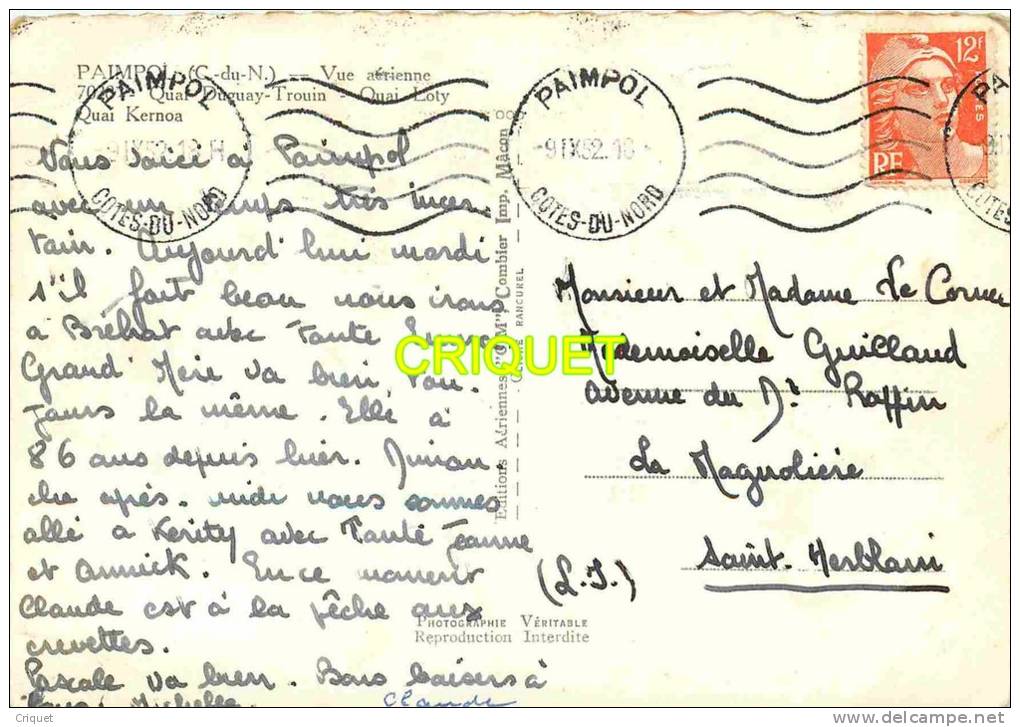 PAIMPOL (C.-du-N.) -- Vue aérienne
Quai Duguay-Trouin - Quai Loty
Quai Kernoa
PAIMPOL
9 IX 52. 18 H
COTES-DU-NORD
PAIMPOL
9 IX 52. 18
COTES-DU-NORD
12F
POSTES
RF
Nous voici à Paimpol
avec un temps très incer
tain. Aujourd'hui mardi
s'il fait beau nous irons
à Bréhat avec Tante
Grand Mère va bien, tou-
jours la même. Elle à
86 ans depuis hier. Diman-
che après-midi nous sommes
allé à Kerity avec Tante Jeanne
et Annick. En ce moment
Claude est à la pêche aux
crevettes.
Pascale va bien. Bons baisers à
tous. Michelle Claude
Editions Aériennes "CIM", Combier Imp. Mâcon
CLICHÉ RANCUREL
CRIQUET
Monsieur et Madame Le Cornec
Mademoiselle Guillaud
Avenue du Dr Raffin
La Magnolière
Saint-Herblain
(L.I.)
PHOTOGRAPHIE VÉRITABLE
Reproduction Interdite
Criquet
www.delcampe.net